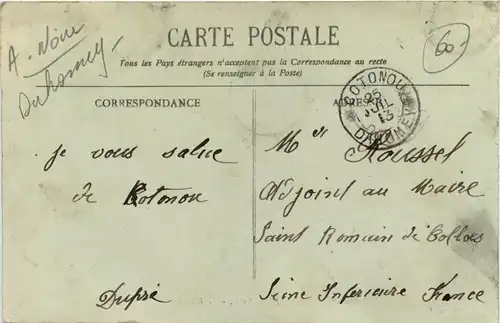 A. Noire
Dahomey
60
CARTE POSTALE
Tous les Pays étrangers n'acceptent pas la Correspondance au recto
(Se renseigner à la Poste)
CORRESPONDANCE
je vous salue
de Cotonou
Dupré
ADRESSE
COTONOU
25
JUIL
13
DAHOMEY
Mr Roussel
Adjoint au Maire
Saint Romain de Colbosc
Seine Inférieure France